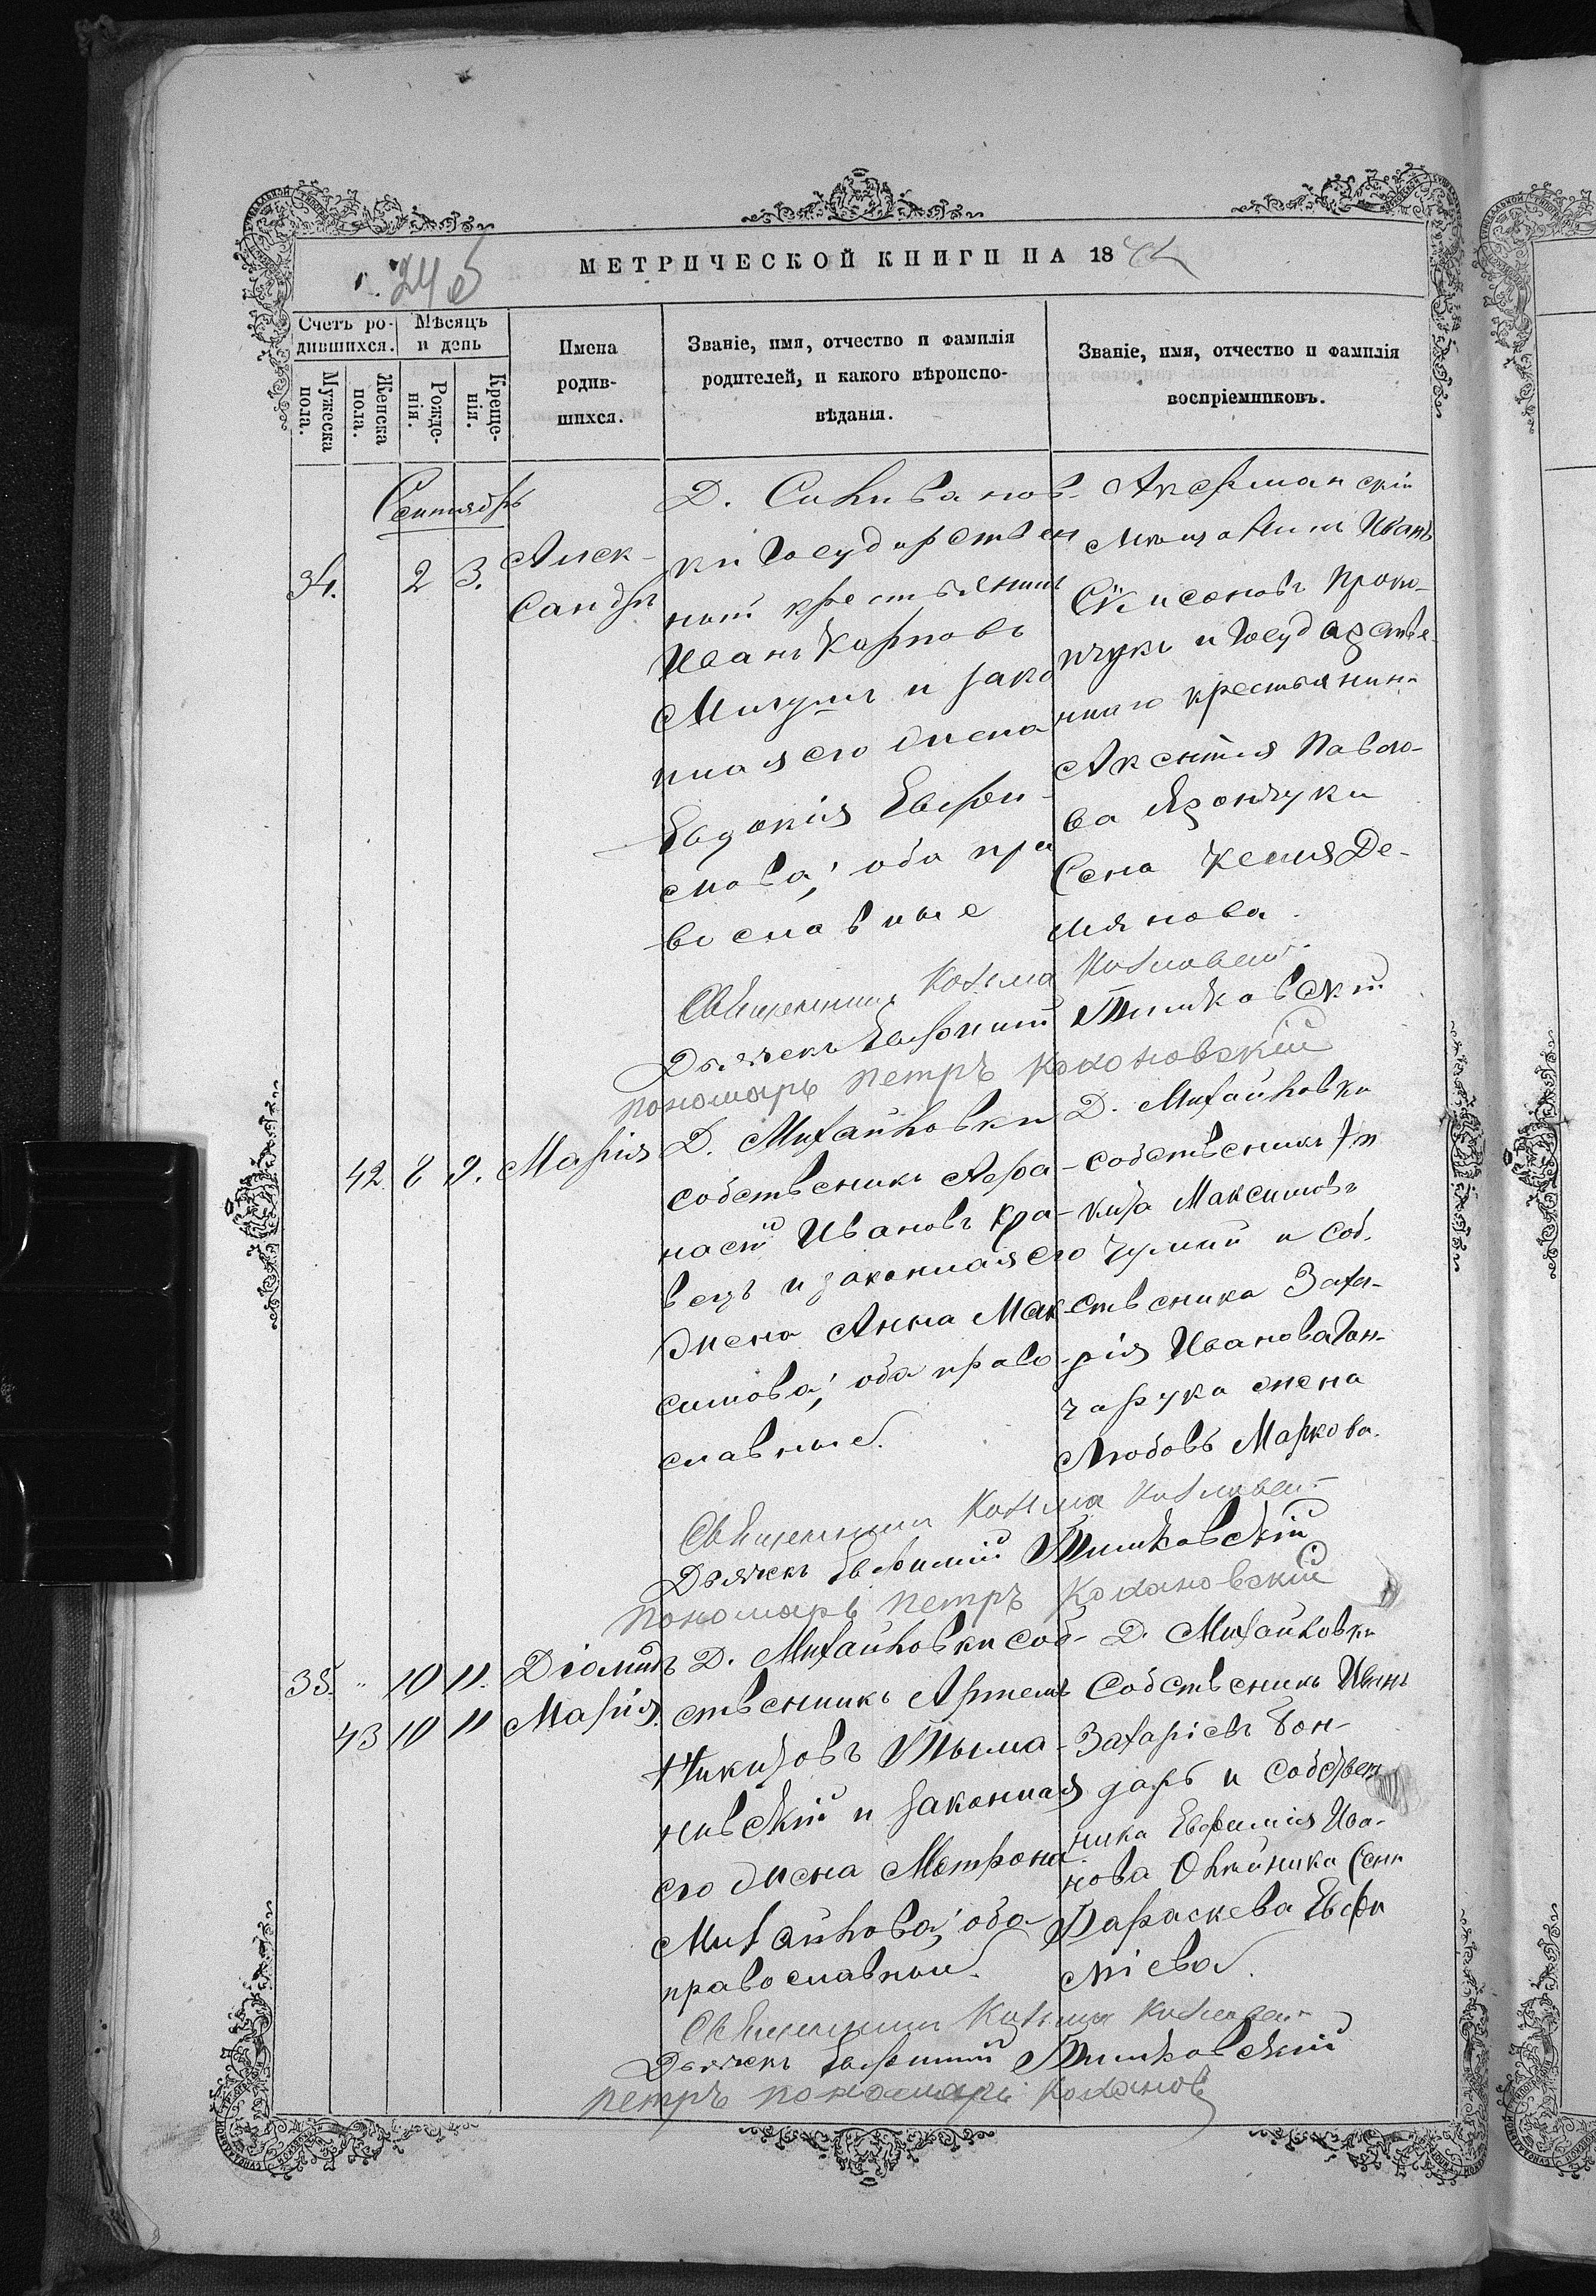 МЕТРИЧЕСКОЙ КНИГИ НА 18
Счетъ ро-
дившихся.
Мѣсяцъ
и день
Мужеска
пола.
Женска
пола.
Рожде-
нія.
Креще-
нія.
Имена
родив-
шихся.
Званіе, имя, отчество и фамилія
родителей, и какого вѣроиспо-
вѣданія.
Званіе, имя, отчество и фамилія
воспріемниковъ.
Сентябрь
34. 2 3.
Алек-
сандръ
Д. Селиванов-
ки Государствен
ный крестьянинъ
Иванъ Карповъ
и зако
нная его жена
Евдокія Евфи-
мова; оба пра
вославные
Аккерманскій
мѣщанинъ Иванъ
Проко-
пчукъ и Государстве-
ннаго крестьянина
Аксентія Павло-
ва
Ксенія Де-
мянова.
Священникъ Козьма Козловскій
Дьячекъ Евфимій Тишковскій
пономарь петръ Кохановскій
42 8 9.
Марія
Д. Михайловки
собственникъ Афа-
насій Ивановъ Кра-
вецъ и законная его
жена Анна Мак-
симова; оба право-
славные.
Д. Михайловки
собственникъ
Максимовъ
и соб-
ственника Заха-
рія Иванова Гон-
чарука жена
Любовь Маркова.
Священникъ Козьма Козловскій
Дьячекъ Евфимій Тишковскій
пономарь петръ Кохановскій
35. " 10 11.
Діомидъ
43 10 11
Марія.
Д. Михайловки соб-
ственникъ Артемъ
Никитовъ Тыма-
новскій и законная
его жена Матрона
Михайлова; оба
православные.
Д. Михайловки
Собственникъ Иванъ
Захаріевъ Бон-
дарь и собствен
ника Евфимія Ива-
нова Олейника
Параскева Евфи
міева.
Священникъ Козьма Козловскій
Дьячекъ Евфимій Тишковскій
петръ пономарь Коханов